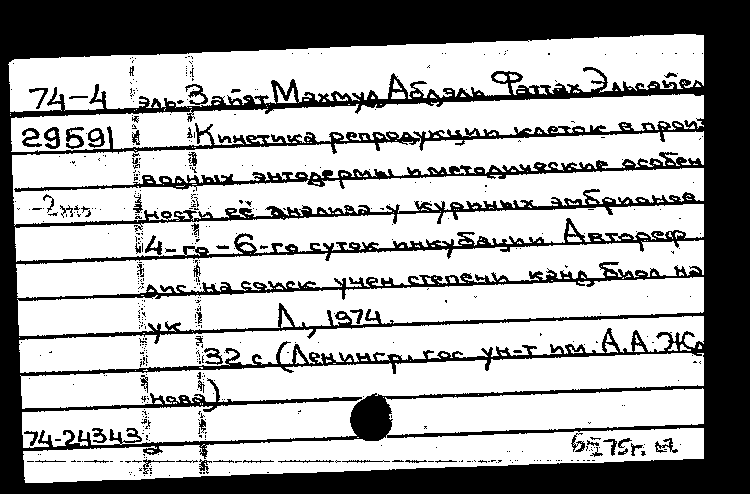 74-4 эль-Запят, Махмуд Абдэль Фаттах Эльсайед
29591 Кинетика репродукции клеток в произ
водных энтодермы и методические особен
-2
ности её анализа у куриных эмбрионов
4-го-6-го суток инкубации. Автореф.
дис. на соиск. учен. степени канд. биол. на
ук Л., 1974.
32 с. (Ленингр. гос. ун-т им. А.А. Жда
нова).
74-24343
75г.